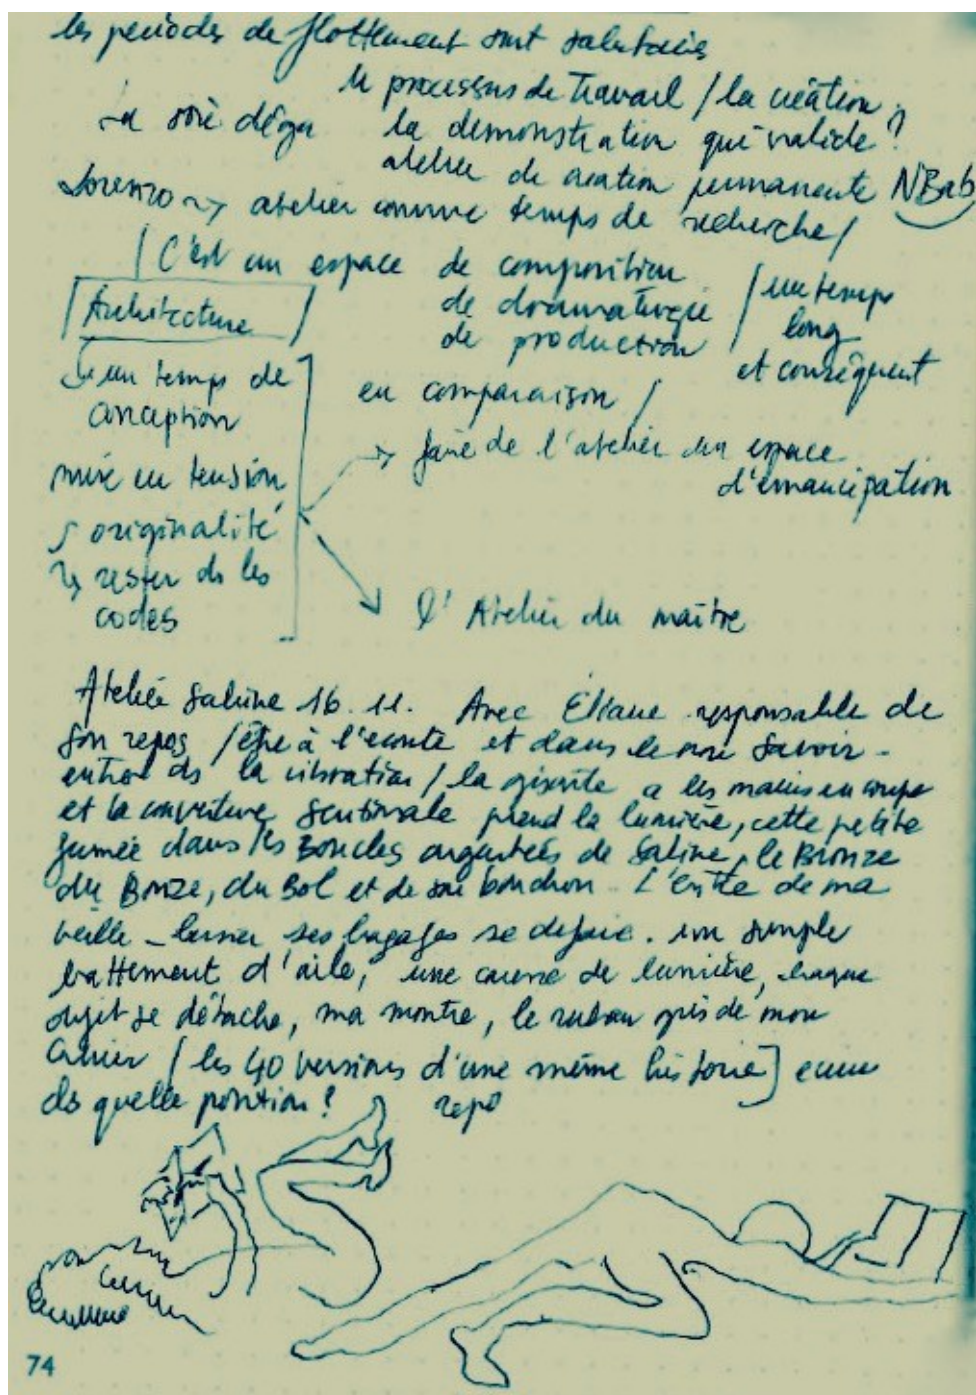 les périodes de flottement sont salutaires
le processus de travail / la création
la démonstration qui valide ?
atelier de création permanente NBab
Lorenzo ~> atelier comme temps de recherche /
/ C'est un espace de composition
de dramaturgie
de production
/ un temps
long
et conséquent
Architecture
un temps de
conception
mise en tension
originalité
rester ds les
codes
en comparaison /
faire de l'atelier un espace
d'émancipation
l'Atelier du maître
Atelier Sabine 16.11. Avec Éliane responsable de
son repos / être à l'écoute et dans le non savoir -
entrer ds la vibration / la gisante a les mains en coupe
et la couverture prend la lumière, cette petite
fumée dans les Boucles argentées de Sabine, le Bronze
du Bonze, du Bol et de son bouchon. L'entte de ma
veille - laisser ses bagages se défaire. un simple
battement d'aile, une caresse de lumière, chaque
objet se détache, ma montre, le ruban gris de mon
Cahier / les 40 versions d'une même histoire]
ds quelle position ? repo
74